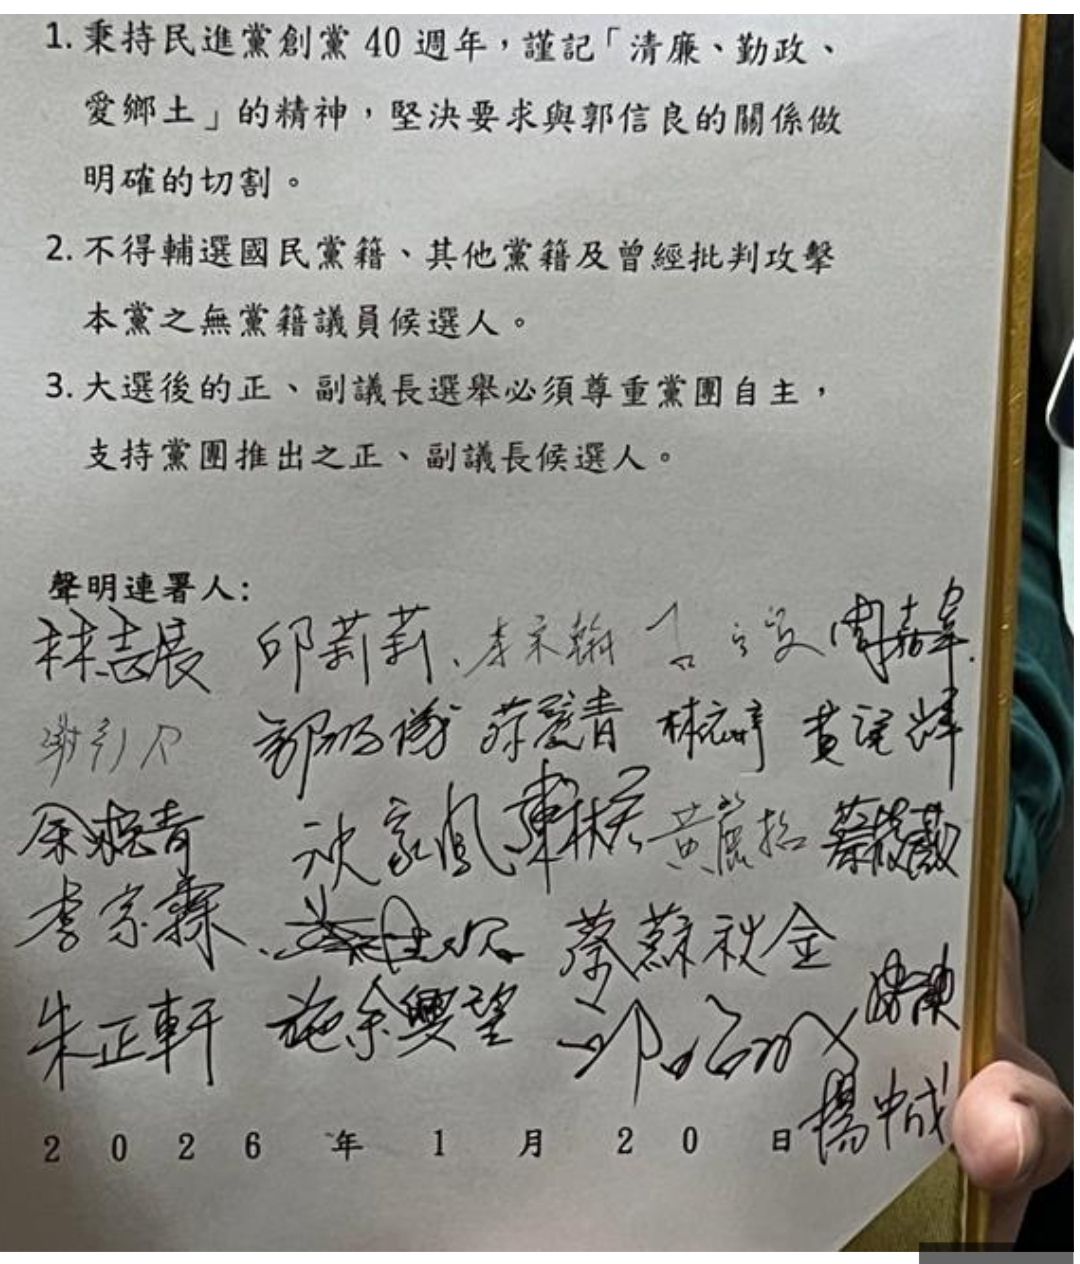 1. 秉持民進黨創黨 40 週年，謹記「清廉、勤政、
愛鄉土」的精神，堅決要求與郭信良的關係做
明確的切割。
2. 不得輔選國民黨籍、其他黨籍及曾經批判攻擊
本黨之無黨籍議員候選人。
3. 大選後的正、副議長選舉必須尊重黨團自主，
支持黨團推出之正、副議長候選人。
聲明連署人:
林志展 邱莉莉 李宗翰 周嘉韋
蔡麗青 林依婷
余柷青 沈家鳳 陳秋宏 黃麗招 蔡筱薇
李宗霖 蔡蘇秋金
朱正軒 施余興望
楊中成
2026年1月20日